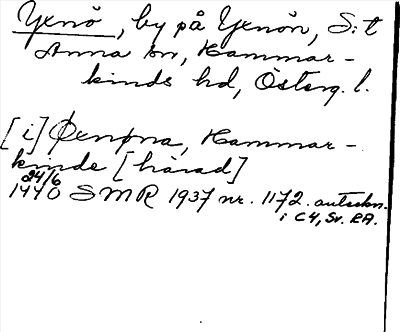 Yxnö, by på Yxnön, S:t
Anna sn, Hammar-
kinds hd, Österg. l.
[i] Øxnøna, Hammar-
kinde [härad]
24/6
1440 SMR 1937 nr. 1172. autsekn.
i C4, Sv. RA.